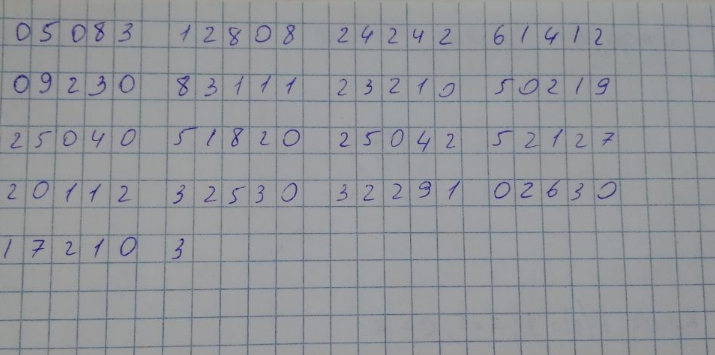 05083 12808 24242 61412
09230 83111 23210 50219
25040 51820 25042 52127
20112 32530 32291 02630
17210 3